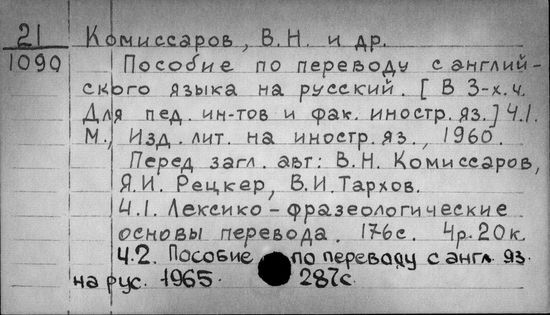 21 Комиссаров, В.Н. и др.
1090 Пособие по переводу с англий-
ского языка на русский. [В 3-х.ч.
Для пед. ин-тов и фак. иностр. яз.] Ч.1.
М., Изд. лит. на иностр. яз., 1960.
Перед загл. авт: В.Н. Комиссаров,
Я.И. Рецкер, В.И. Тархов.
Ч.1. Лексико-фразеологические
основы перевода. 176с. 4р.20к
Ч.2. Пособие по переводу с англ. яз.
на рус. 1965 287с.